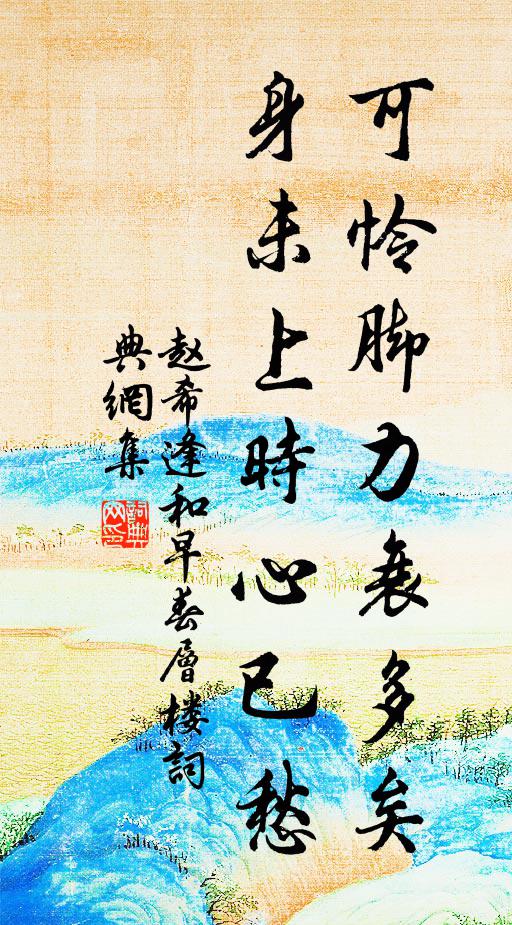 可怜脚力衰多矣
身未上時心已愁
赵希逢和早春層楼詞
典網集
詞典网印